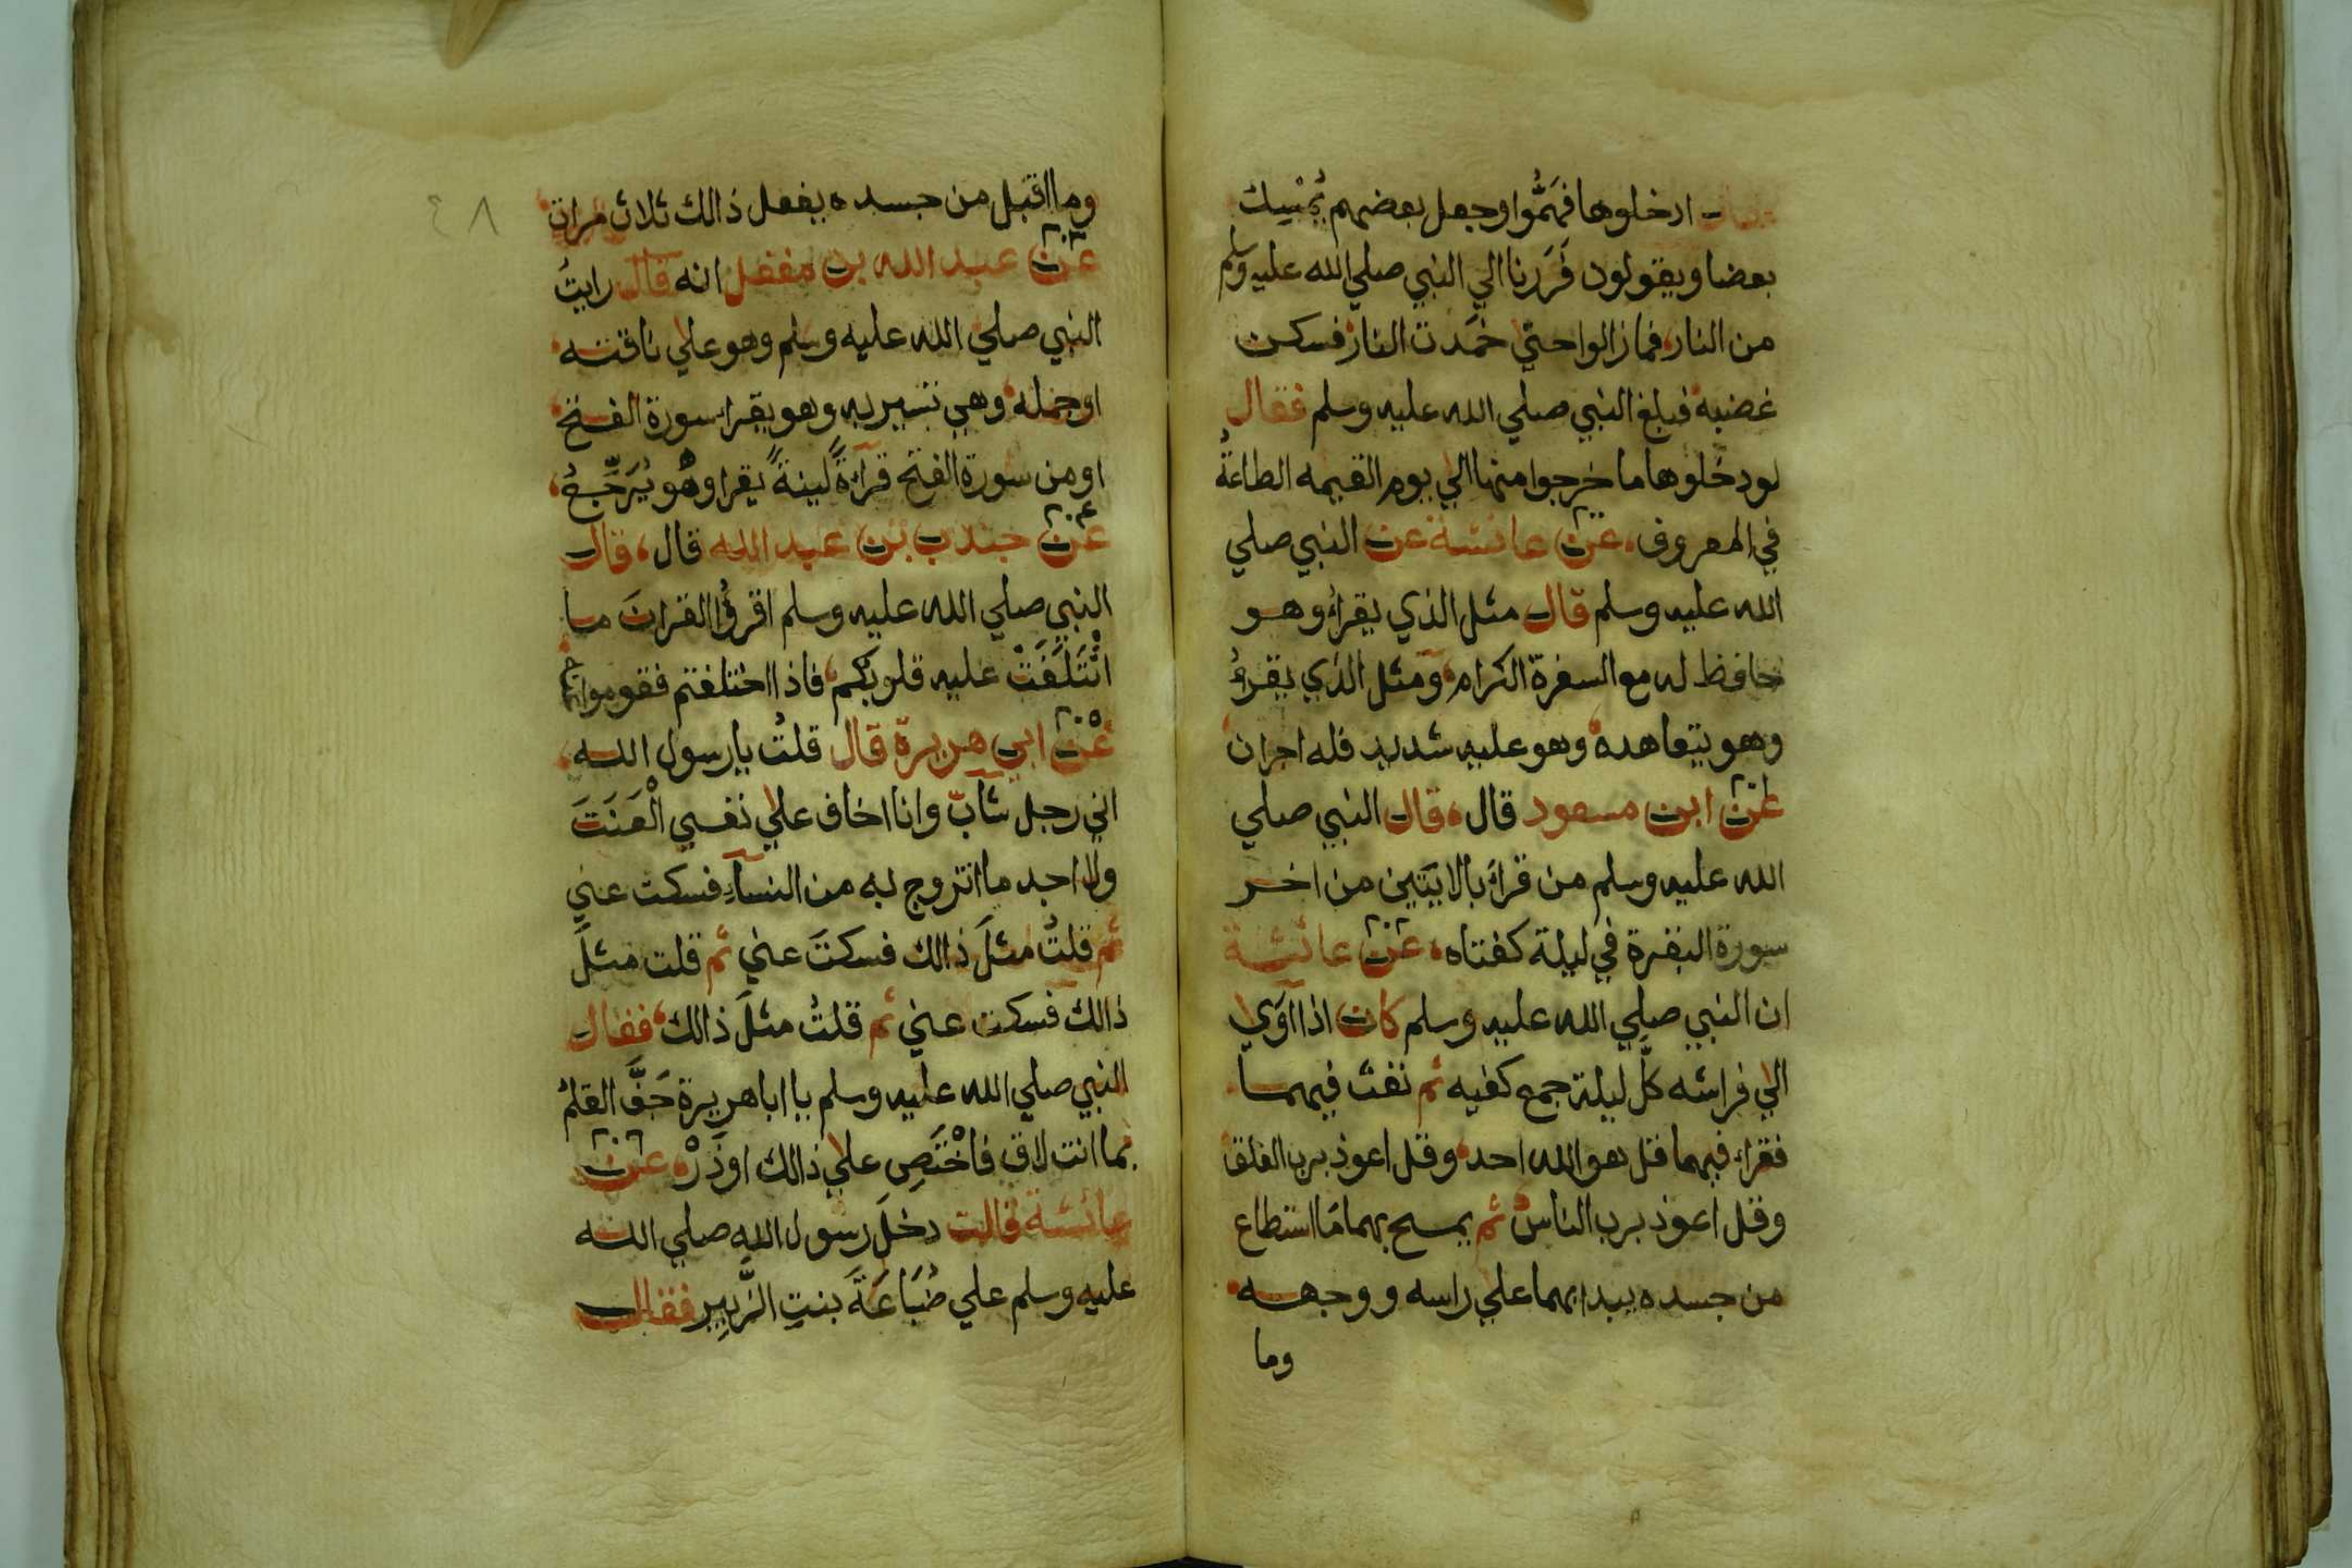 فقال ادخلوها فهَمُّوا وجعل بعضهم يُمْسِك
بعضا ويقولون فَرَرنا الي النبي صلي الله عليه وسلم
من النار فما زالوا حتي خمَدت النار فسكن
غضبه فبلغ النبي صلي الله عليه وسلم فقال
لو دخلوها ما خرجوا منها الي يوم القيمه الطاعةُ
في المعروف عن عائشة عن النبي صلي
الله عليه وسلم قال مثل الذي يقراءُ وهو
حافظ له مع السفرة الكرام ومثل الذي يقرءُ
وهو يتعاهده وهو عليه شديد فله اجران
عن ابن مسعود قال قال النبي صلي
الله عليه وسلم من قراءَ بالايتين من اخر
سورة البقرة في ليلة كفتاه عن عائشة
ان النبي صلي الله عليه وسلم كان اذا اَوَي
الي فراشه كلَّ ليلة جمع كفيه ثم نفث فيهما
فقراء فيهما قل هو الله احد وقل اعوذ برب الفلق
وقل اعوذ برب الناس ثم يمسح بهما مَا استطاع
من جسده يبدا بهما علي راسه ووجهه
وما
٤٨
وما اقبل من جسده يفعل ذالك ثلاث مرات
عن عبد الله بن مغفل انه قال رايتُ
النبي صلي الله عليه وسلم وهو علي ناقته
او جمله وهي تسير به وهو يقرا سورة الفتح
او من سورة الفتح قراءةً لينةً يقرا وهُو يُرَجِّعُ
عن جندب بن عبد الله قال قال
النبي صلي الله عليه وسلم اقرؤُا القرانَ ما
ائْتَلَفَتْ عليه قلوبكم فاذا اختلفتم فقوموا عنه
عن ابي هريرة قال قلتُ يا رسول الله
اني رجل شابّ وانا اخاف علي نفسي الْعَنَتَ
ولا اجد ما اتزوج به من النساءِ فسكت عني
ثم قلتُ مثلَ ذالك فسكتَ عني ثم قلت مثلَ
ذالك فسكت عني ثم قلتُ مثلَ ذالك فقال
النبي صلي الله عليه وسلم يا ابا هريرة جَفَّ القلمُ
بما انت لاق فاخْتَصِ علي ذالك او ذَرْ عن
عائشة قالت دخلَ رسول الله صلي الله
عليه وسلم علي ضُبَاعَةَ بنتِ الزُّبيرِ فقال